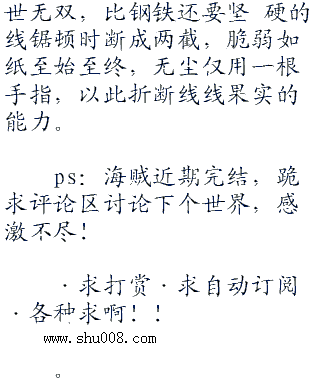 世无双，比钢铁还要坚 硬的
线锯顿时断成两截，脆弱如
纸至始至终，无尘仅用一根
手指，以此折断线线果实的
能力。
ps：海贼近期完结，跪
求评论区讨论下个世界，感
激不尽！
·求打赏·求自动订阅
·各种求啊！！
www.shu008.com
。